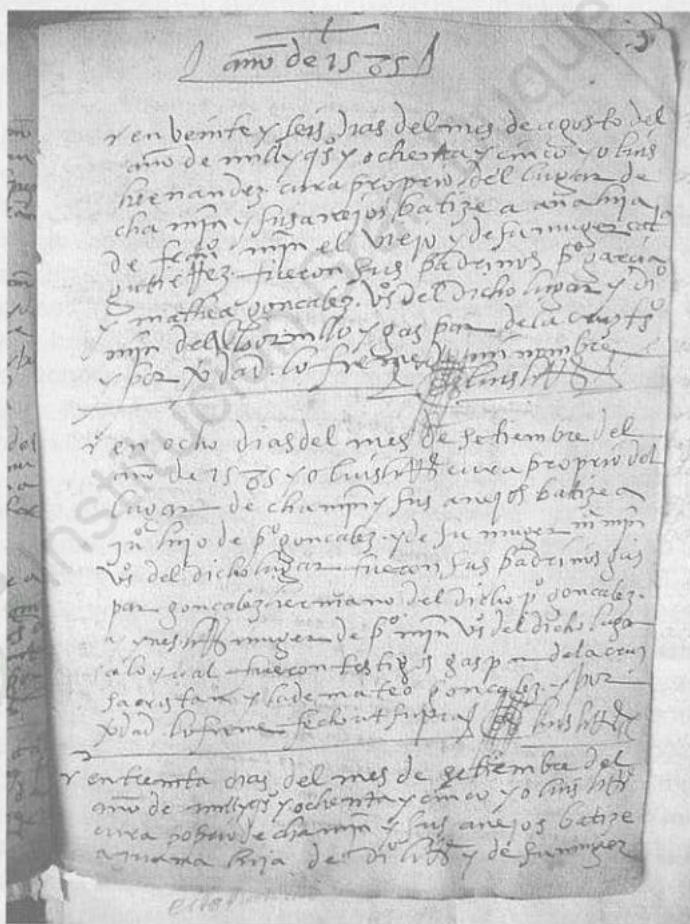 año de 1585
en veinte y seis dias del mes de agosto del
año de mill y qs y ochenta y cinco yo luis
hernandez cura proprio del lugar de
chamin y sus anejos batize a ana hija
de min el viejo y de su muger cat
gutieRez fueron sus padrinos po garcia
y mathea goncalez vos del dicho lugar y
min del y gaspar de la cruz tso
y por vdad lo firme de mi nombre
luis
en ocho dias del mes de setiembre del
año de 1585 yo luis cura proprio del
lugar de chamin y sus anejos batize a
juo hijo de po goncalez y de su muger min
vos del dicho lugar fueron sus padrinos gas
par goncalez hermano del dicho po goncalez
a ynes muger de po min vos del dicho lugar
a lo qual fueron testigos gaspar de la cruz
sacristan y mateo goncalez y por
vdad lo firme fecho ut supra luis
en treinta dias del mes de setiembre del
año de mill y qs y ochenta y cinco yo luis
cura proprio de chamin y sus anejos batize
a juana hija de y de su muger